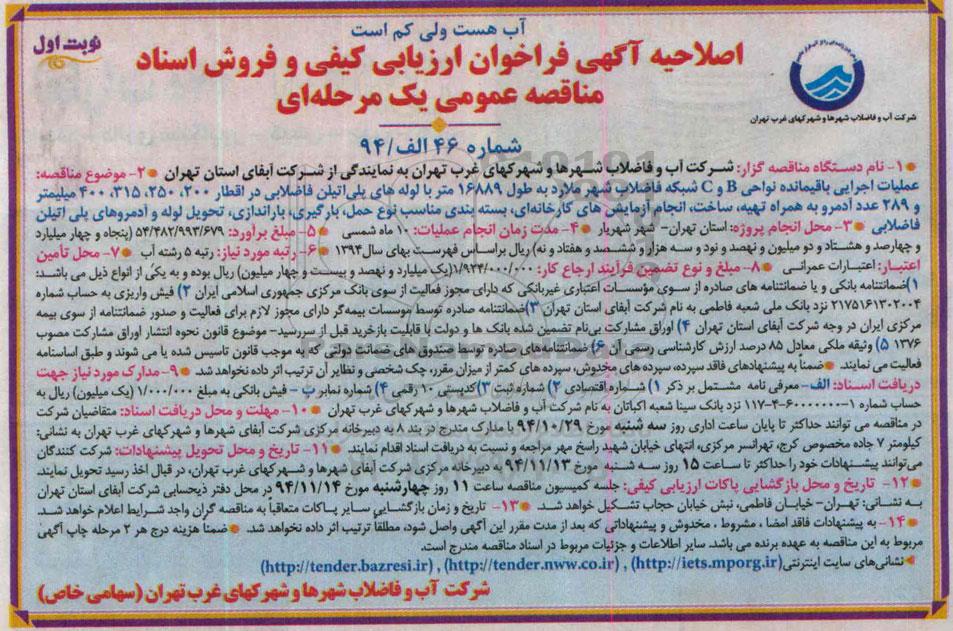 آب هست ولی کم است
نوبت اول
اصلاحیه آگهی فراخوان ارزیابی کیفی و فروش اسناد
مناقصه عمومی یک مرحله‌ای
شرکت آب و فاضلاب شهرها و شهرکهای غرب تهران
شماره ۴۶ الف/۹۴
۱- نام دستگاه مناقصه گزار: شرکت آب و فاضلاب شهرها و شهرکهای غرب تهران به نمایندگی از شرکت آبفای استان تهران ۲- موضوع مناقصه:
عملیات اجرایی باقیمانده نواحی B و C شبکه فاضلاب شهر ملارد به طول ۱۶۸۸۹ متر با لوله های پلی‌اتیلن فاضلابی در اقطار ۲۰۰، ۲۵۰، ۳۱۵، ۴۰۰ میلیمتر
و ۲۸۹ عدد آدمرو به همراه تهیه، ساخت، انجام آزمایش های کارخانه‌ای، بسته بندی مناسب نوع حمل، بارگیری، باراندازی، تحویل لوله و آدمروهای پلی اتیلن
فاضلابی ۳- محل انجام پروژه: استان تهران- شهر شهریار ۴- مدت زمان انجام عملیات: ۱۰ ماه شمسی ۵- مبلغ برآورد: ۵۴/۴۸۲/۹۹۳/۶۷۹ (پنجاه و چهار میلیارد
و چهارصد و هشتاد و دو میلیون و نهصد و نود و سه هزار و ششصد و هفتاد و نه) ریال براساس فهرست بهای سال ۱۳۹۴ ۶- رتبه مورد نیاز: رتبه ۵ رشته آب ۷- محل تأمین
اعتبار: اعتبارات عمرانی ۸- مبلغ و نوع تضمین فرآیند ارجاع کار: ۱/۹۲۴/۰۰۰/۰۰۰(یک میلیارد و نهصد و بیست و چهار میلیون) ریال بوده و به یکی از انواع ذیل می باشد:
۱)ضمانتنامه بانکی و یا ضمانتنامه های صادره از سوی مؤسسات اعتباری غیربانکی که دارای مجوز فعالیت از سوی بانک مرکزی جمهوری اسلامی ایران ۲) فیش واریزی به حساب شماره
۲۱۷۵۱۶۱۳۰۲۰۰۴ نزد بانک ملی شعبه فاطمی به نام شرکت آبفای استان تهران ۳)ضمانتنامه صادره توسط موسسات بیمه‌گر دارای مجوز لازم برای فعالیت و صدور ضمانتنامه از سوی بیمه
مرکزی ایران در وجه شرکت آبفای استان تهران ۴) اوراق مشارکت بی‌نام تضمین شده بانک ها و دولت با قابلیت بازخرید قبل از سررسید- موضوع قانون نحوه انتشار اوراق مشارکت مصوب
۱۳۷۶ ۵) وثیقه ملکی معادل ۸۵ درصد ارزش کارشناسی رسمی آن ۶) ضمانتنامه‌های صادره توسط صندوق های ضمانت دولتی که به موجب قانون تاسیس شده یا می شوند و طبق اساسنامه
فعالیت می نمایند ضمناً به پیشنهادهای فاقد سپرده، سپرده های مخدوش، سپرده های کمتر از میزان مقرر، چک شخصی و نظایر آن ترتیب اثر داده نخواهد شد. ۹- مدارک مورد نیاز جهت
دریافت اسناد: الف- معرفی نامه مشتمل بر ذکر ۱) شماره اقتصادی ۲) شماره ثبت ۳)کدپستی ۱۰ رقمی ۴) شماره نمابر ب- فیش بانکی به مبلغ ۱/۰۰۰/۰۰۰ (یک میلیون) ریال به
نزد بانک سینا شعبه اکباتان به نام شرکت آب و فاضلاب شهرها و شهرکهای غرب تهران ۱۰- مهلت و محل دریافت اسناد: متقاضیان شرکت
در مناقصه می توانند حداکثر تا پایان ساعت اداری روز سه شنبه مورخ ۹۴/۱۰/۲۹ با مدارک مندرج در بند ۸ به دبیرخانه مرکزی شرکت آبفای شهرها و شهرکهای غرب تهران به نشانی:
کیلومتر ۷ جاده مخصوص کرج، تهرانسر مرکزی، انتهای خیابان شهید راسخ مهر مراجعه و نسبت به دریافت اسناد اقدام نمایند ۱۱- تاریخ و محل تحویل پیشنهادات: شرکت کنندگان
می‌توانند پیشنهادات خود را حداکثر تا ساعت ۱۵ روز سه شنبه مورخ ۹۴/۱۱/۱۳ به دبیرخانه مرکزی شرکت آبفای شهرها و شهرکهای غرب تهران، در قبال اخذ رسید تحویل نمایند.
۱۲- تاریخ و محل بازگشایی پاکات ارزیابی کیفی: جلسه کمیسیون مناقصه ساعت ۱۱ روز چهارشنبه مورخ ۹۴/۱۱/۱۴ در محل دفتر ذیحسابی شرکت آبفای استان تهران
به نشانی: تهران- خیابان فاطمی، نبش خیابان حجاب تشکیل خواهد شد. ۱۳- تاریخ و زمان بازگشایی سایر پاکات متعاقبا به مناقصه گران واجد شرایط اعلام خواهد شد.
۱۴- به پیشنهادات فاقد امضا، مشروط، مخدوش و پیشنهاداتی که بعد از مدت مقرر این آگهی واصل شود، مطلقاً ترتیب اثر داده نخواهد شد. ضمنا هزینه درج هر ۲ مرحله چاپ آگهی
مربوط به این مناقصه به عهده برنده می باشد. سایر اطلاعات و جزئیات مربوط در اسناد مناقصه مندرج است.
نشانی‌های سایت اینترنتی (http://iets.mporg.ir) , (http://tender.nww.co.ir) , (http://tender.bazresi.ir)
شرکت آب و فاضلاب شهرها و شهرکهای غرب تهران (سهامی خاص)